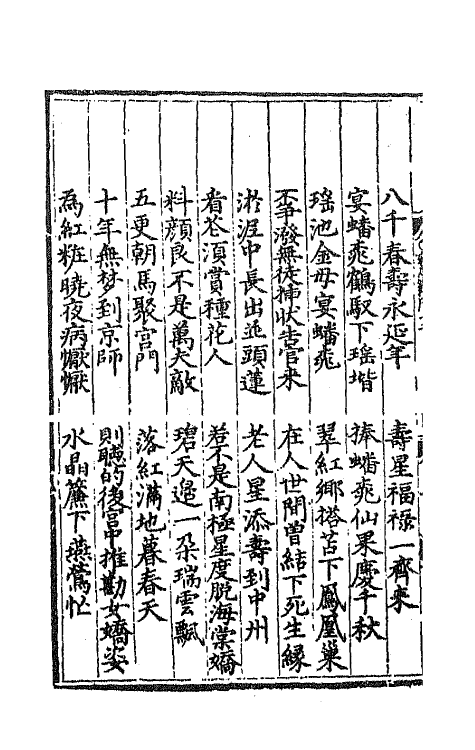 八千春壽永延年　壽星福祿一齊來
宴蟠桃鶴馭下瑶堦　捧蟠桃仙果慶千秋
瑶池金母宴蟠桃　翠紅鄉搭苫下鳳凰巢
潑無徒捕狀告官來　在人世間曾結下死生緣
淤泥中長出並頭蓮　老人星添壽到中州
看花湏賞種花人　若不是南極星度脫海棠嬌
料顔良不是萬夫敵　碧天邉一朶瑞雲飄
五更朝馬聚宫門　落紅滿地暮春天
十年無梦到京師　則聽的後宫中推勘女嬌姿
為紅粧曉夜病懨懨　水晶簾下燕鶯忙